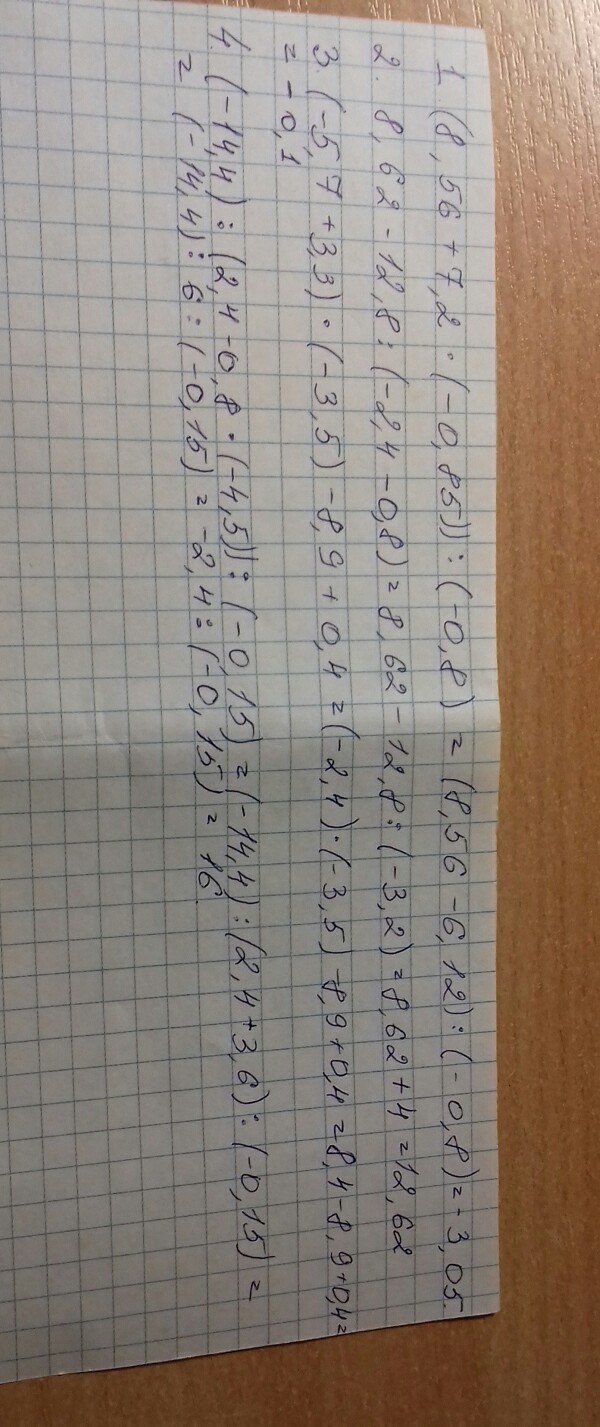 1. (8,56 + 7,2 · (-0,85)) : (-0,8) = (8,56 - 6,12) : (-0,8) = -3,05.
2. 8,62 - 12,8 : (-2,4 - 0,8) = 8,62 - 12,8 : (-3,2) = 8,62 + 4 = 12,62
3. (-5,7 + 3,3) · (-3,5) - 8,9 + 0,4 = (-2,4) · (-3,5) - 8,9 + 0,4 = 8,4 - 8,9 + 0,4 =
= -0,1
4. (-14,4) : (2,4 - 0,8 · (-4,5)) : (-0,15) = (-14,4) : (2,4 + 3,6) : (-0,15) =
= (-14,4) : 6 : (-0,15) = -2,4 : (-0,15) = 16.